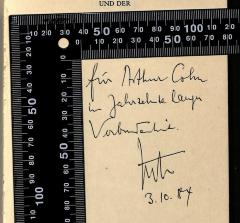 UND DER
für Arthur Cohn
in Jahrzehnte langer
Verbundenheit.
3.10.84